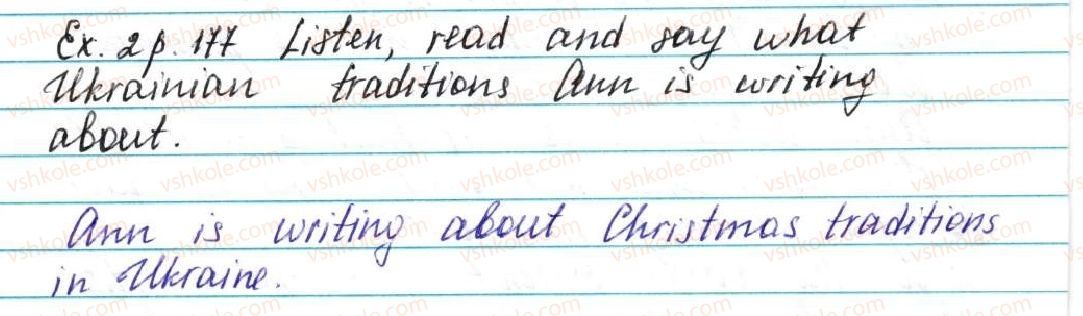 Ex. 2 p. 177 Listen, read and say what
Ukrainian traditions Ann is writing
about.
Ann is writing about Christmas traditions
in Ukraine.